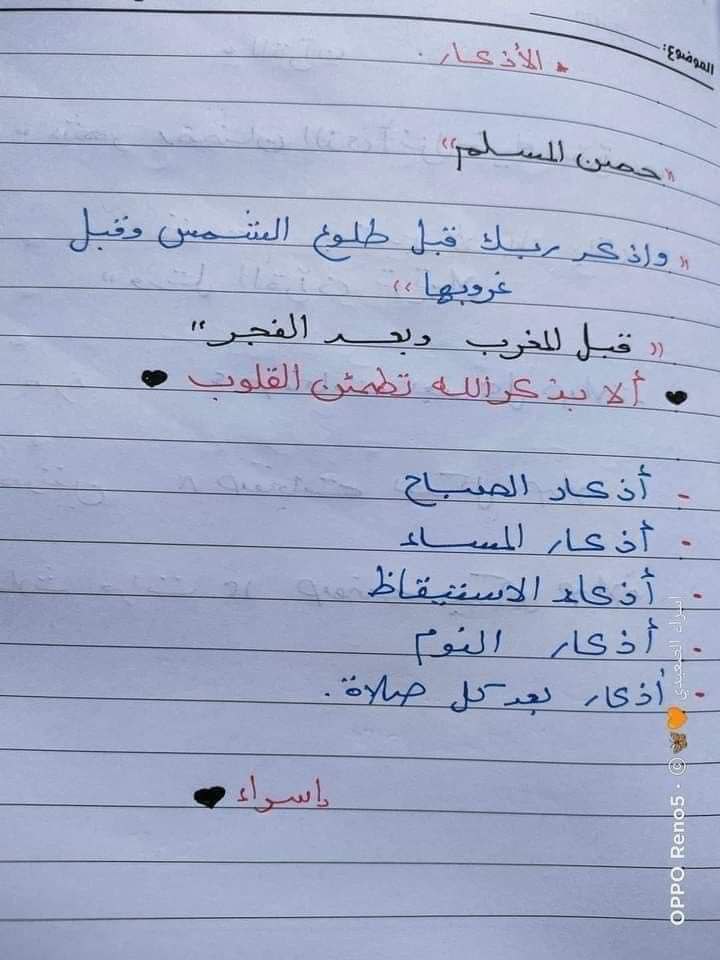 الموضوع:
* الأذكار.
"حصن المسلم"
"واذكر ربك قبل طلوع الشمس وقبل
غروبها"
"قبل المغرب وبعد الفجر"
♥ ألا بذكر الله تطمئن القلوب ♥
- أذكار الصباح
- أذكار المساء
- أذكار الاستيقاظ
- أذكار النوم
- أذكار بعد كل صلاة.
إسراء ♥
OPPO Reno5 · ©